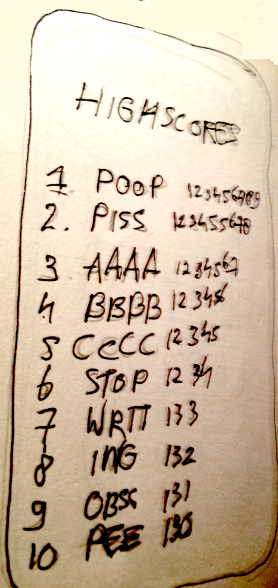 HIGHSCORES
1. POOP 123456789
2. PISS 12345678
3 AAAA 1234567
4 BBBB 123456
5 CCCC 12345
6 STOP 1234
7 WRIT 133
8 ING 132
9 OBSC 131
10 PEE 130